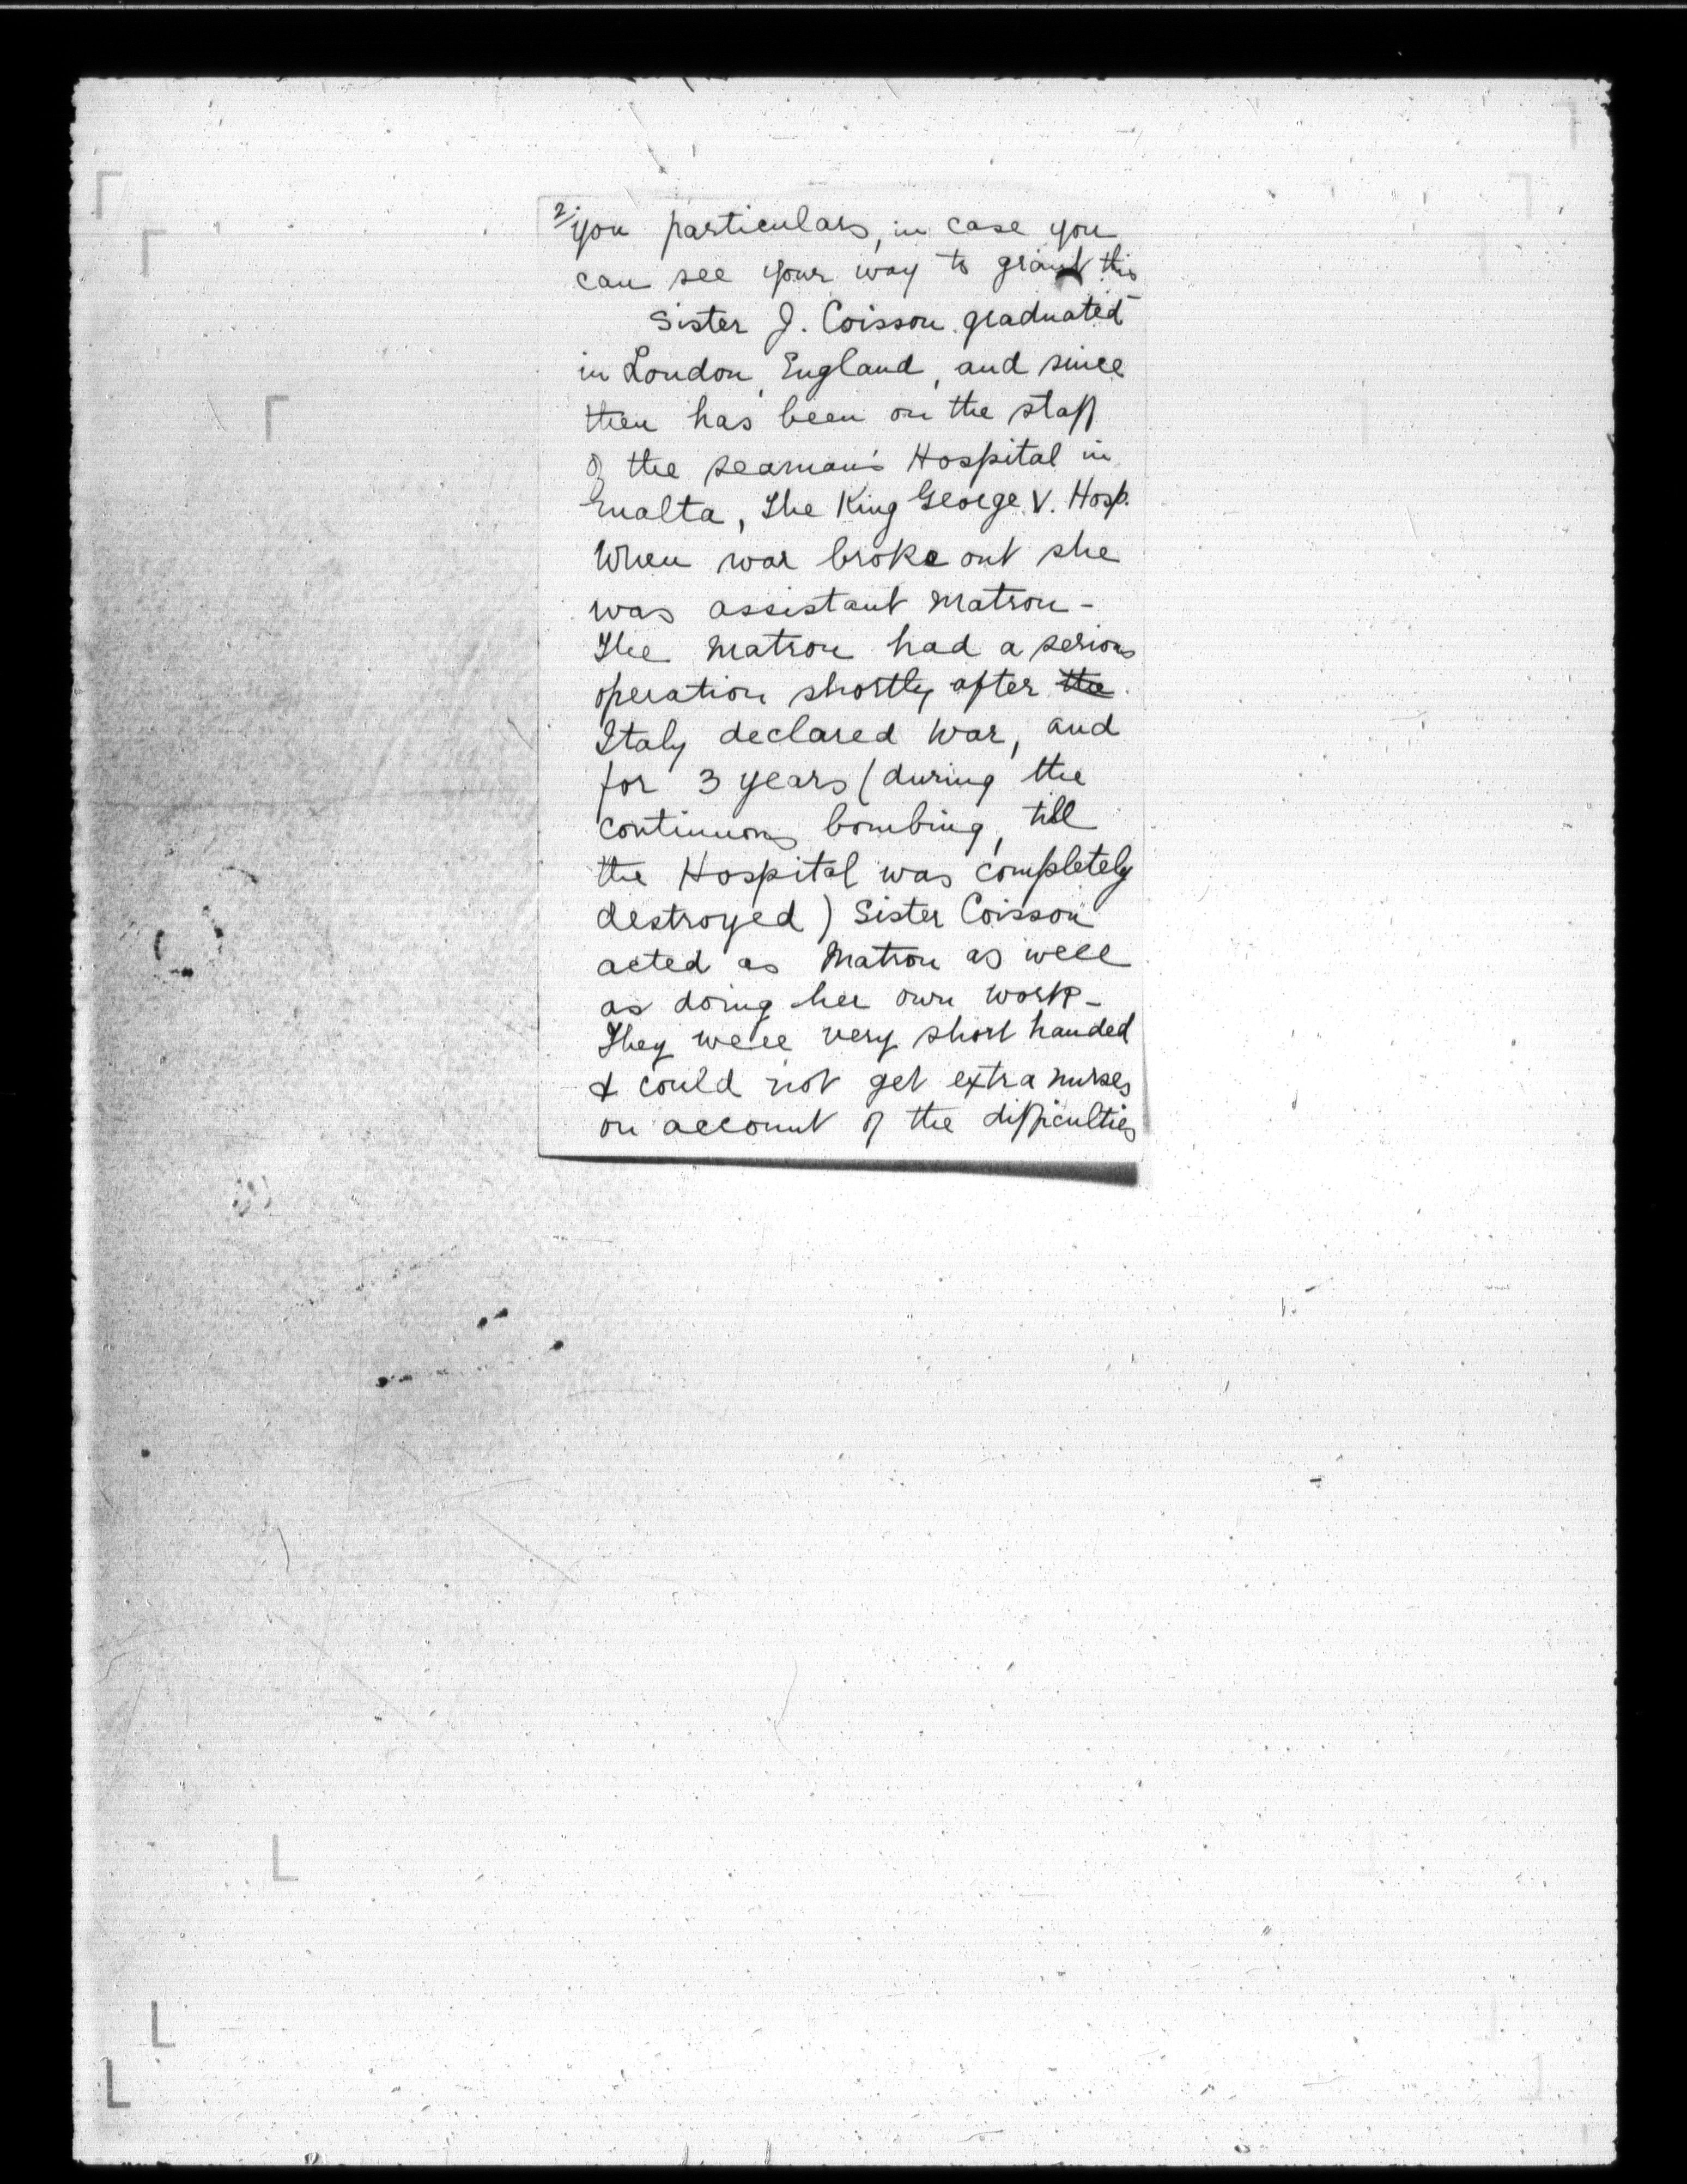 2/ you particulars, in case you
can see your way to grant this
Sister J. Coisson graduated
in London, England, and since
then has been on the staff
of the seaman's Hospital in
Malta, The King George V. Hosp.
When war broke out she
was assistant Matron -
The Matron had a serious
operation shortly after the
Italy declared war, and
for 3 years (during the
continuous bombing, till
the Hospital was completely
destroyed) Sister Coisson
acted as Matron as well
as doing her own work -
They were very short handed
& could not get extra nurses
on account of the difficulties